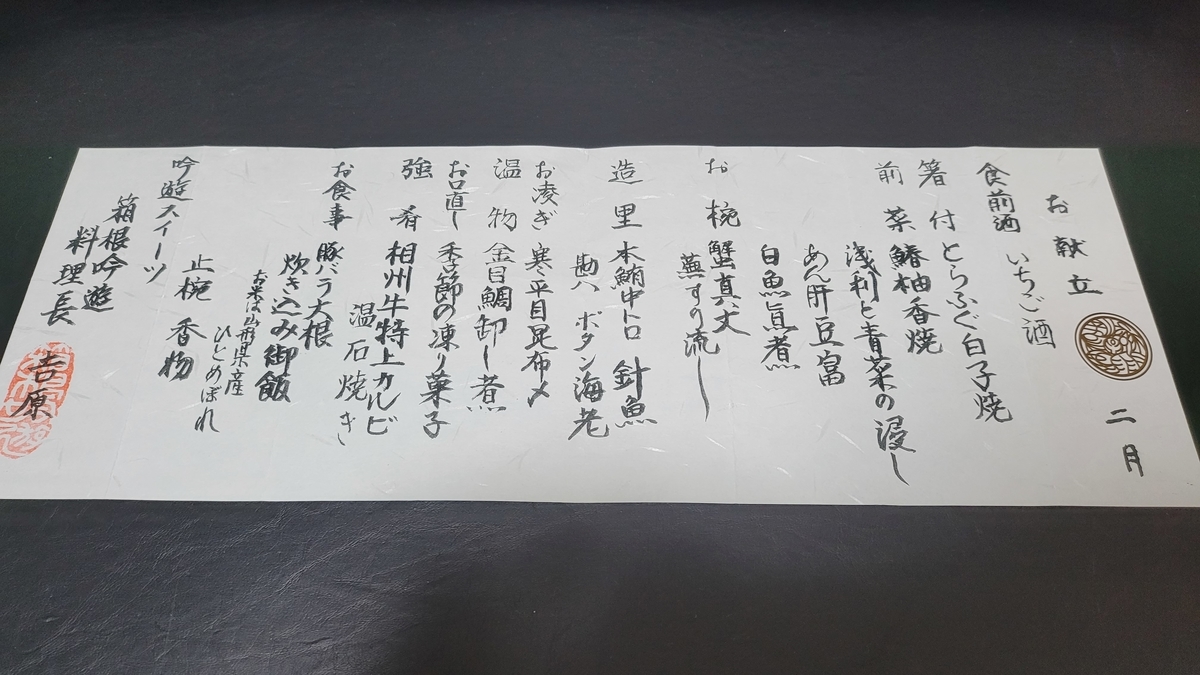 お献立 二月
食前酒 いちご酒
箸付 とらふぐ白子焼
前菜 鰆柚香焼
浅利と青菜の浸し
あん肝豆富
白魚旨煮
お椀 蟹真丈
蕪すり流し
造里 本鮪中トロ 針魚
勘八 ボタン海老
お凌ぎ 寒平目昆布〆
温物 金目鯛卸し煮
お口直し 季節の凍り菓子
強肴 相州牛特上カルビ
温石焼き
お食事 豚バラ大根
炊き込み御飯
お米は山形県産
ひとめぼれ
止椀 香物
吟遊スイーツ
箱根吟遊
料理長 吉原